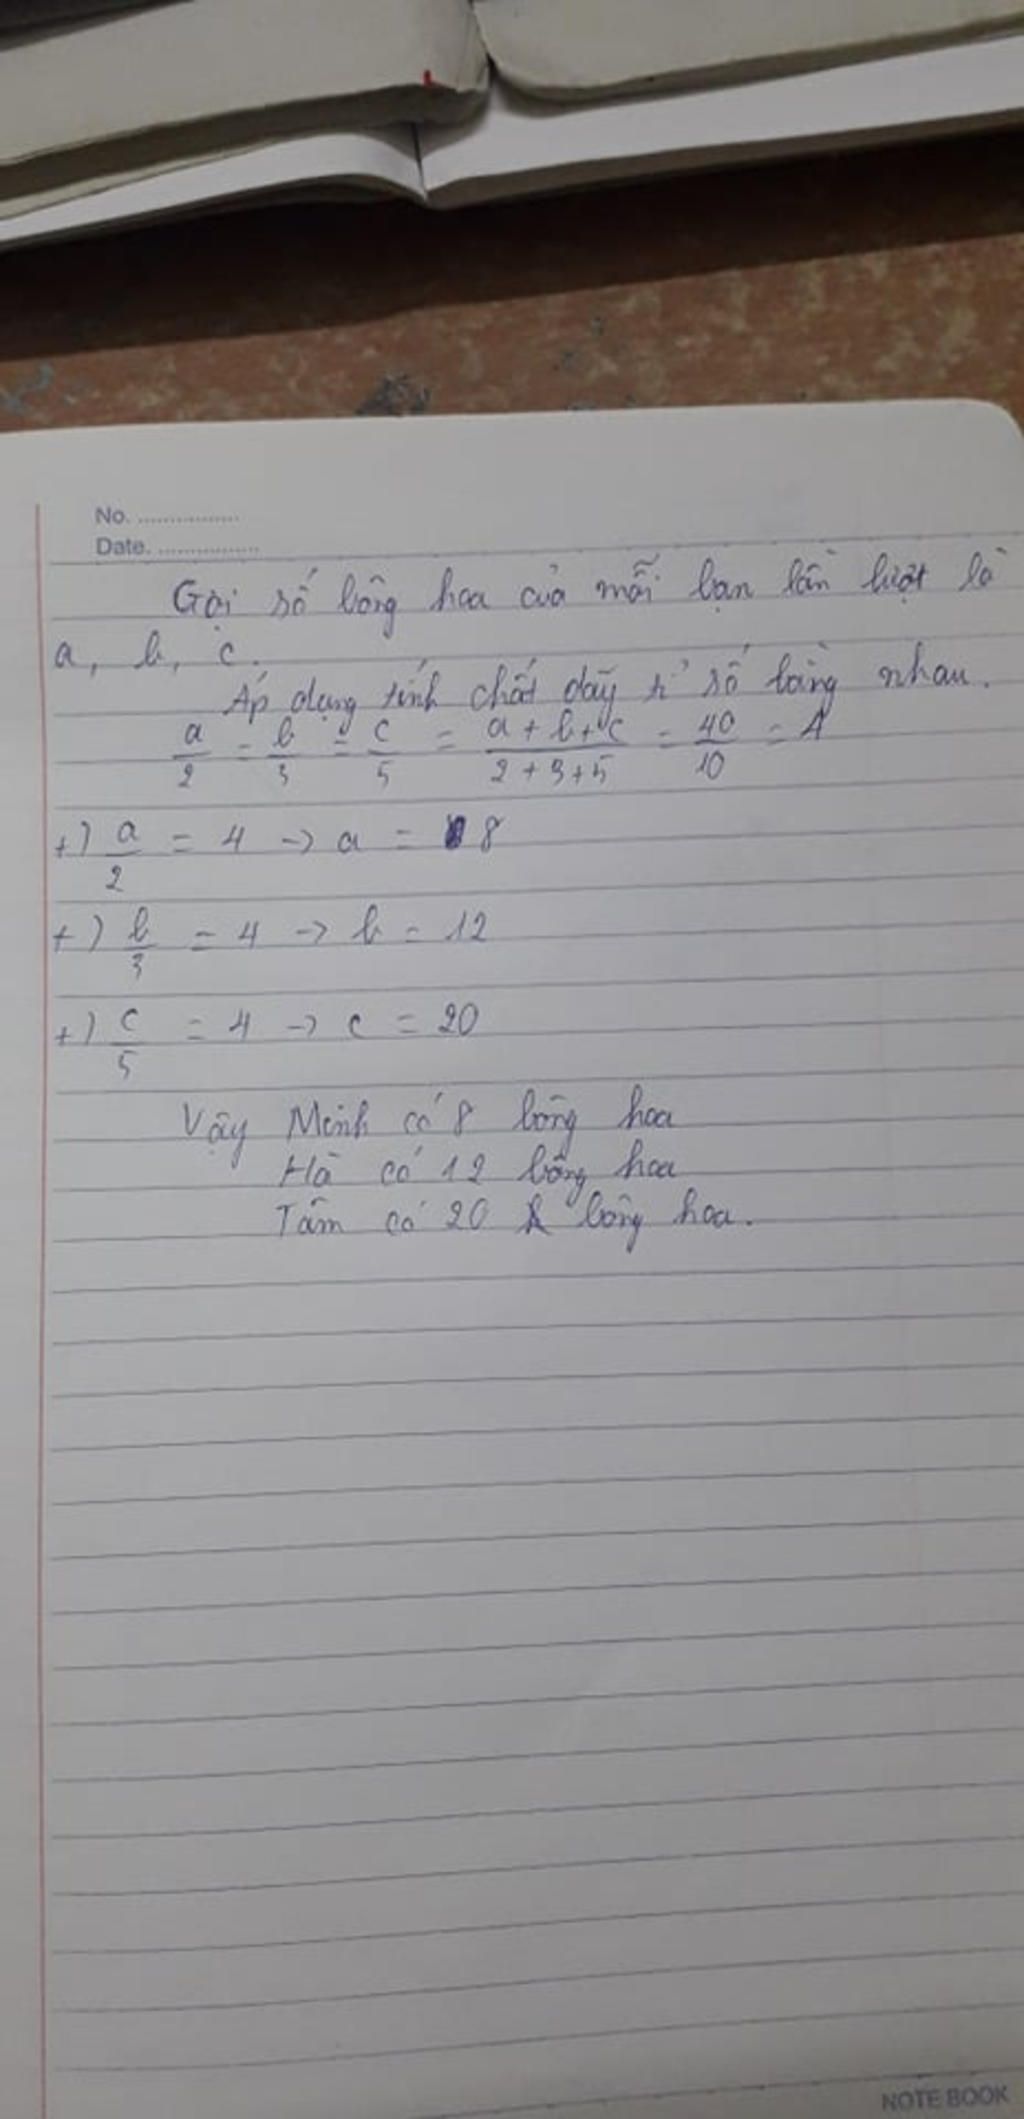 No. ................
Date. ................
Gọi số bông hoa của mỗi bạn lần lượt là
a, b, c.
Áp dụng tính chất dãy tỉ số bằng nhau.
a/2 = b/3 = c/5 = (a + b + c)/(2 + 3 + 5) = 40/10 = 4
+) a/2 = 4 -> a = 8
+) b/3 = 4 -> b = 12
+) c/5 = 4 -> c = 20
Vậy Minh có 8 bông hoa
Hà có 12 bông hoa
Tâm có 20 bông hoa.
NOTE BOOK